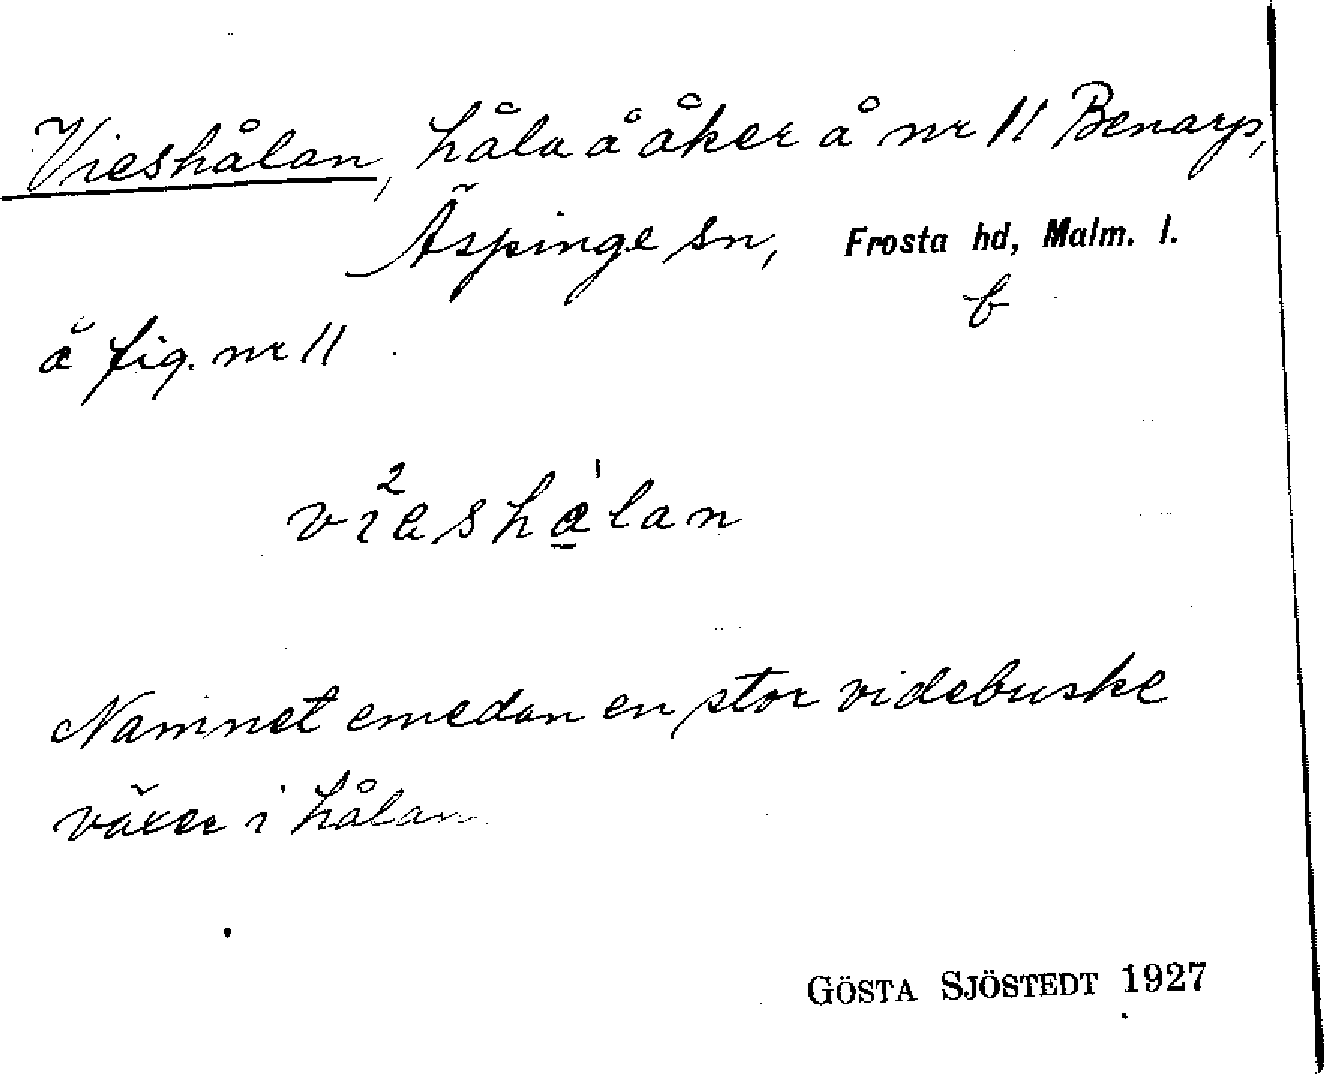 Vieshålan, håla å åker å nr 11 Benarp,
Äspinge sn, Frosta hd, Malm. l.
b
å fig. nr 11
Namnet emedan en stor videbuske
växer i hålan
GÖSTA SJÖSTEDT 1927